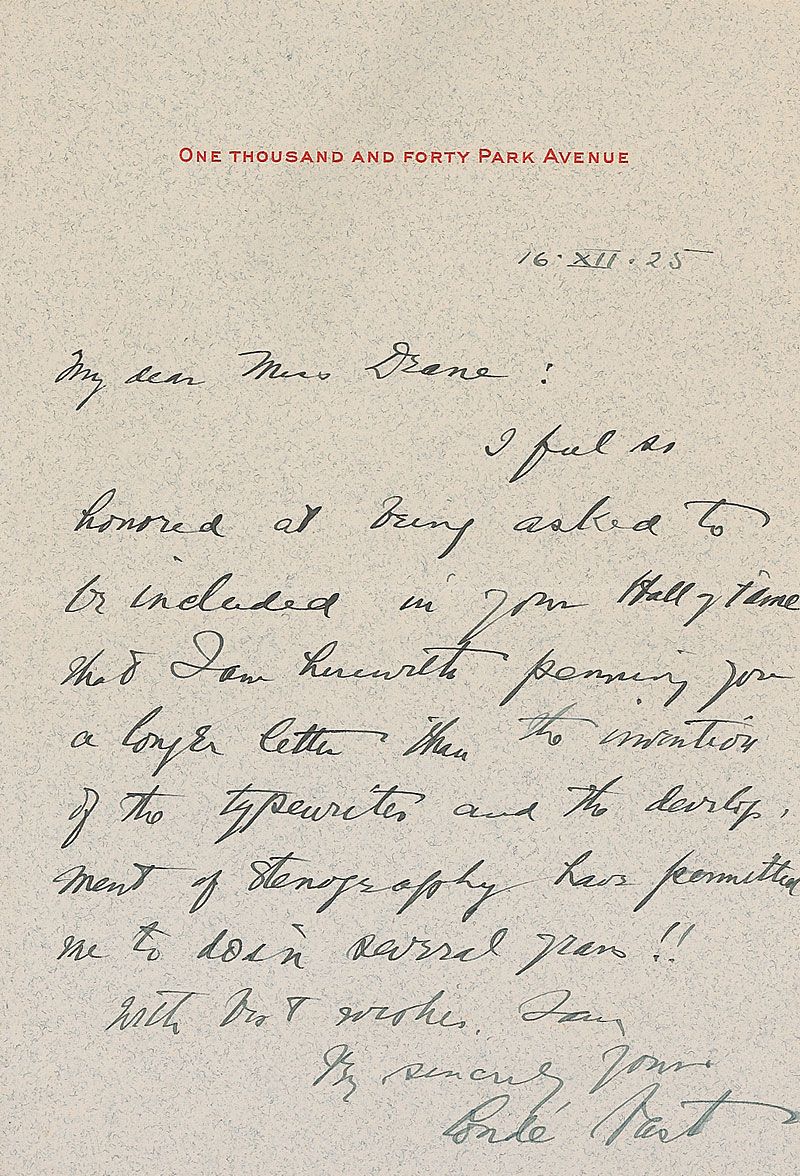 ONE THOUSAND AND FORTY PARK AVENUE
16·XII·25
My dear Miss Deane :
I feel so
honored at being asked to
be included in your Hall of Fame
that I am herewith penning you
a longer letter than the invention
of the typewriter and the develop-
ment of stenography have permitted
me to do in several years !!
With best wishes. I am
Very sincerely yours
Condé Nast